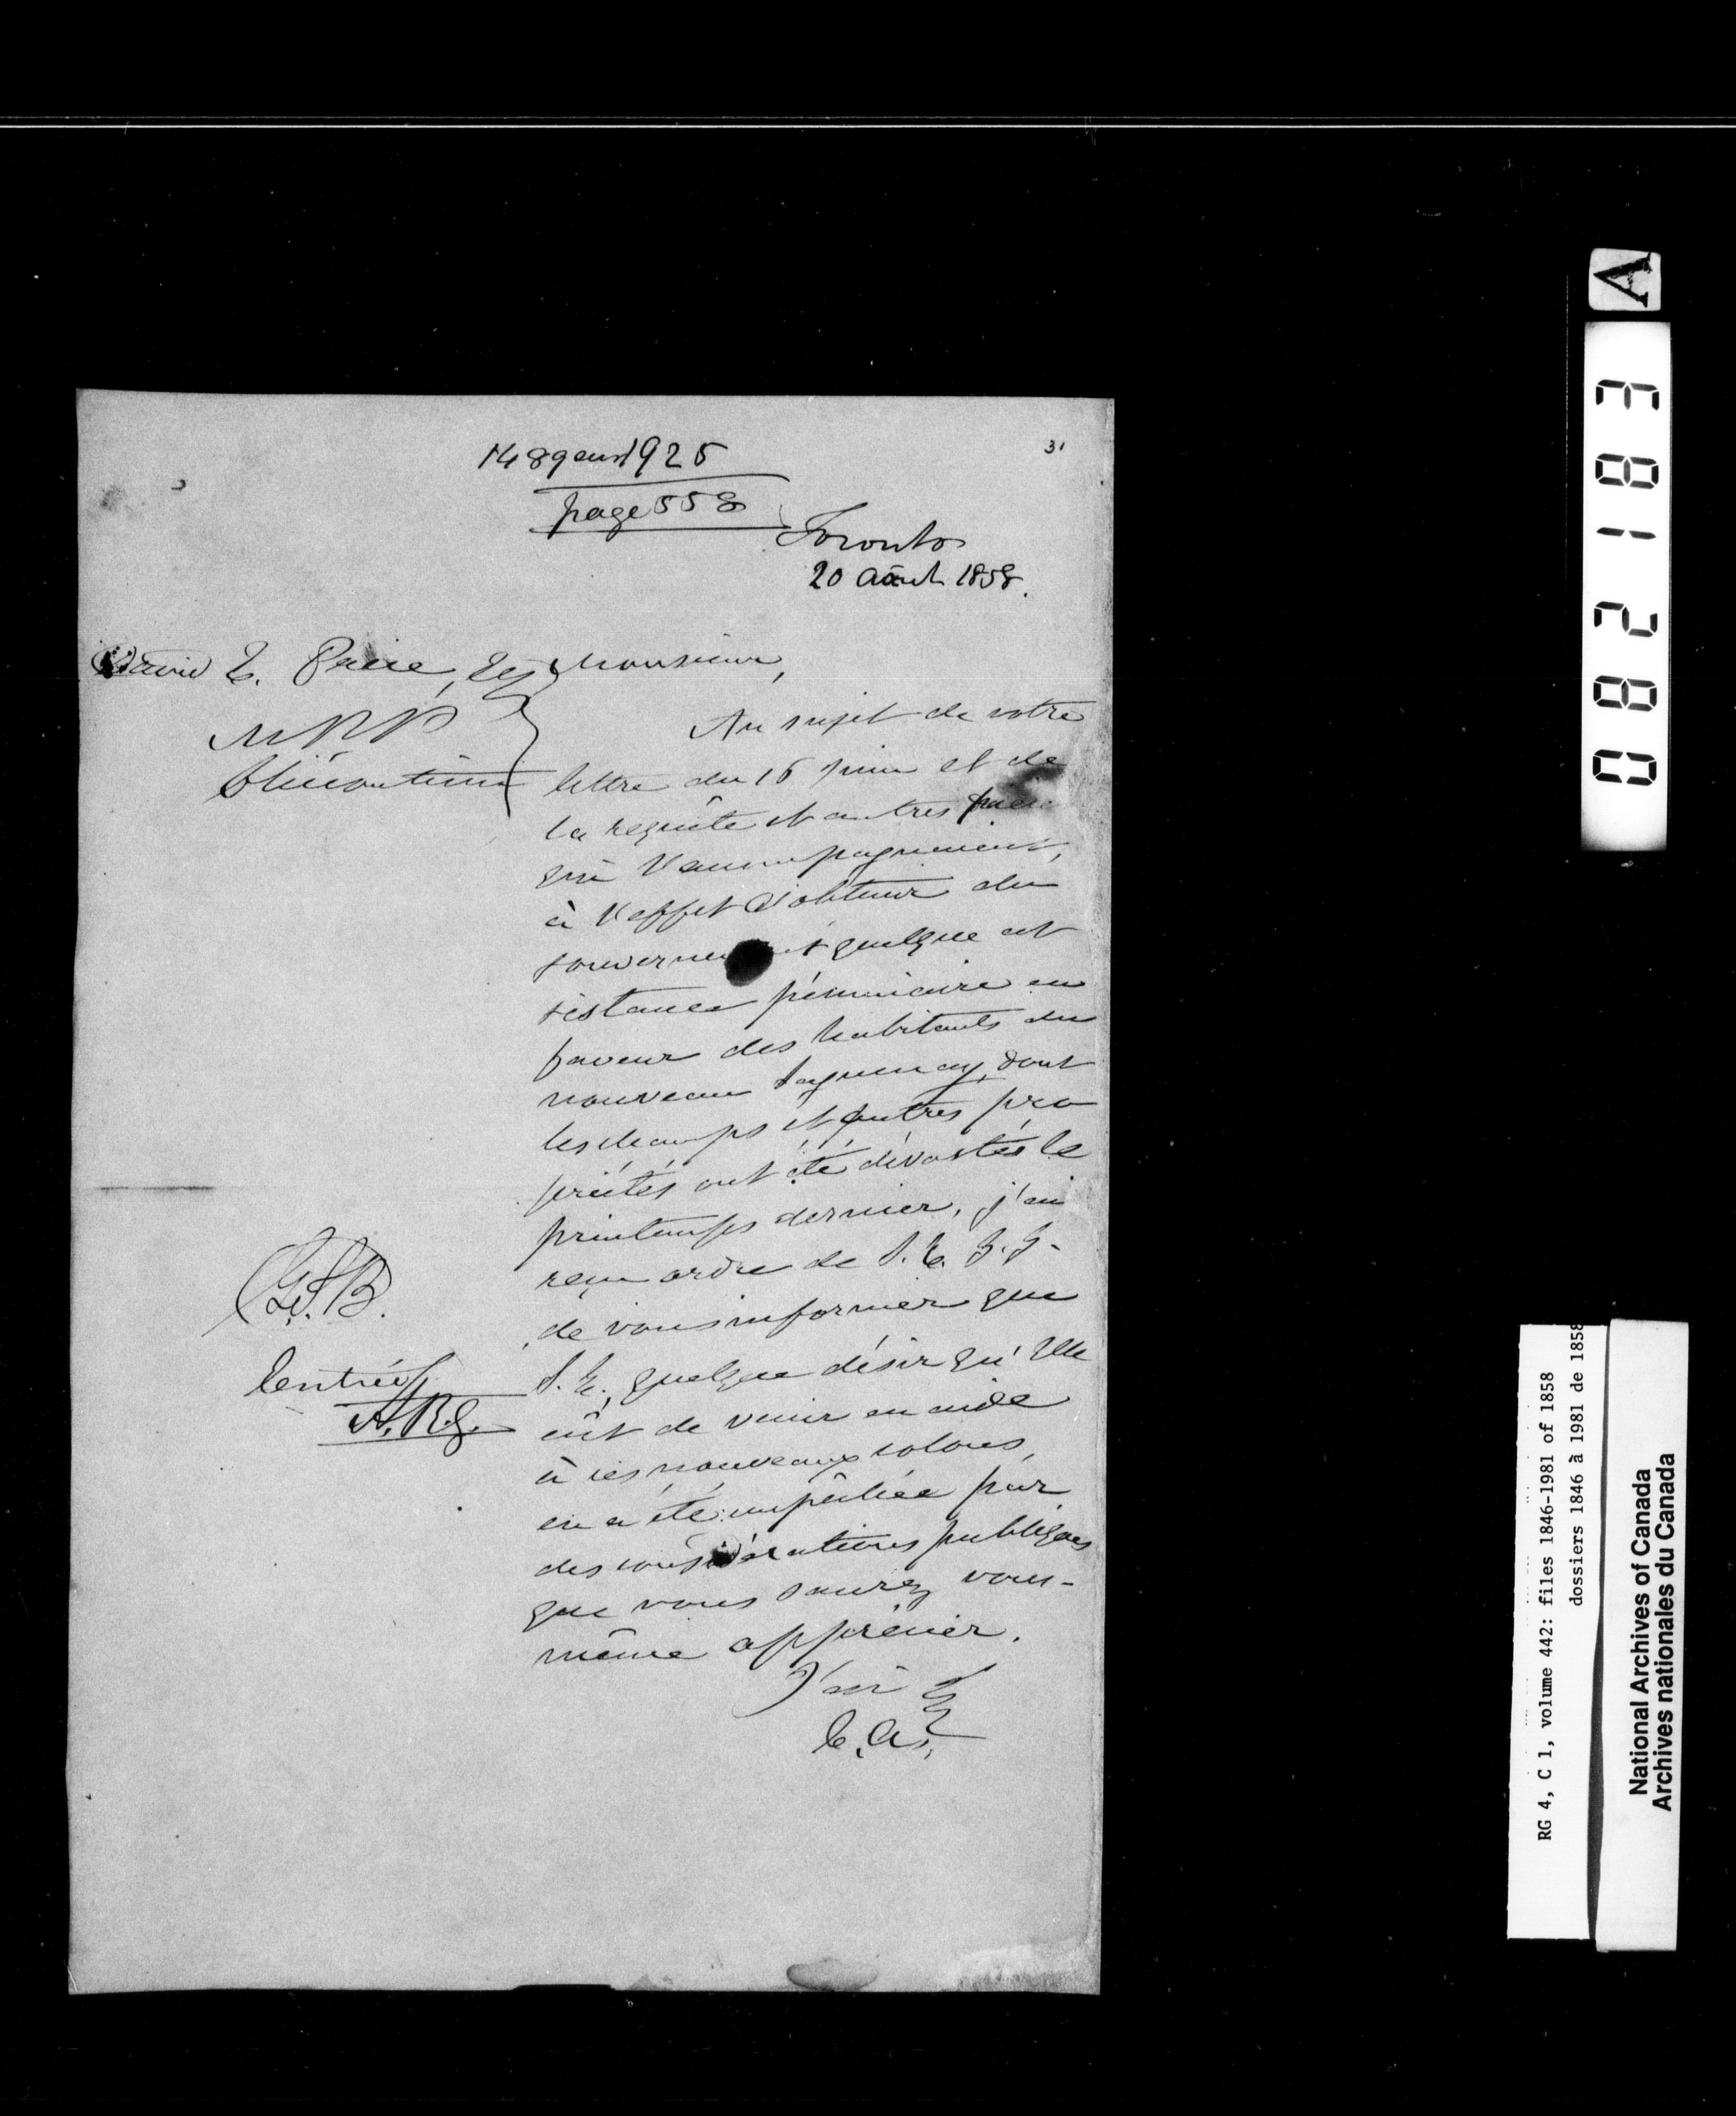 1489 our 1925
page 558
31
Toronto
20 Août 1858.
David E. Price, Esq Monsieur,
M P P
Chicoutimi
Au sujet de votre
lettre du 16 juin et de
la requête et autres pièc
qui l'accompagnaient,
à l'effet d'obtenir du
gouvernement quelque as
sistance pécuniaire en
faveur des habitants du
nouveau Saguenay, dont
les champs et autres pro
priétés ont été dévastés le
printemps dernier, j'ai
reçu ordre de S. E. G. G.
de vous informer que
S. E., quelque désir qu'Elle
eût de venir en aide
à ces nouveaux colons,
en a été empêchée par
des considérations publiques
que vous saurez vous-
même apprécier.
J'ai &
C. A.
Entrée
A. R. G.
0 8 2 1 8 3
A
RG 4, C 1, volume 442: files 1846-1981 of 1858
dossiers 1846 à 1981 de 1858
National Archives of Canada
Archives nationales du Canada